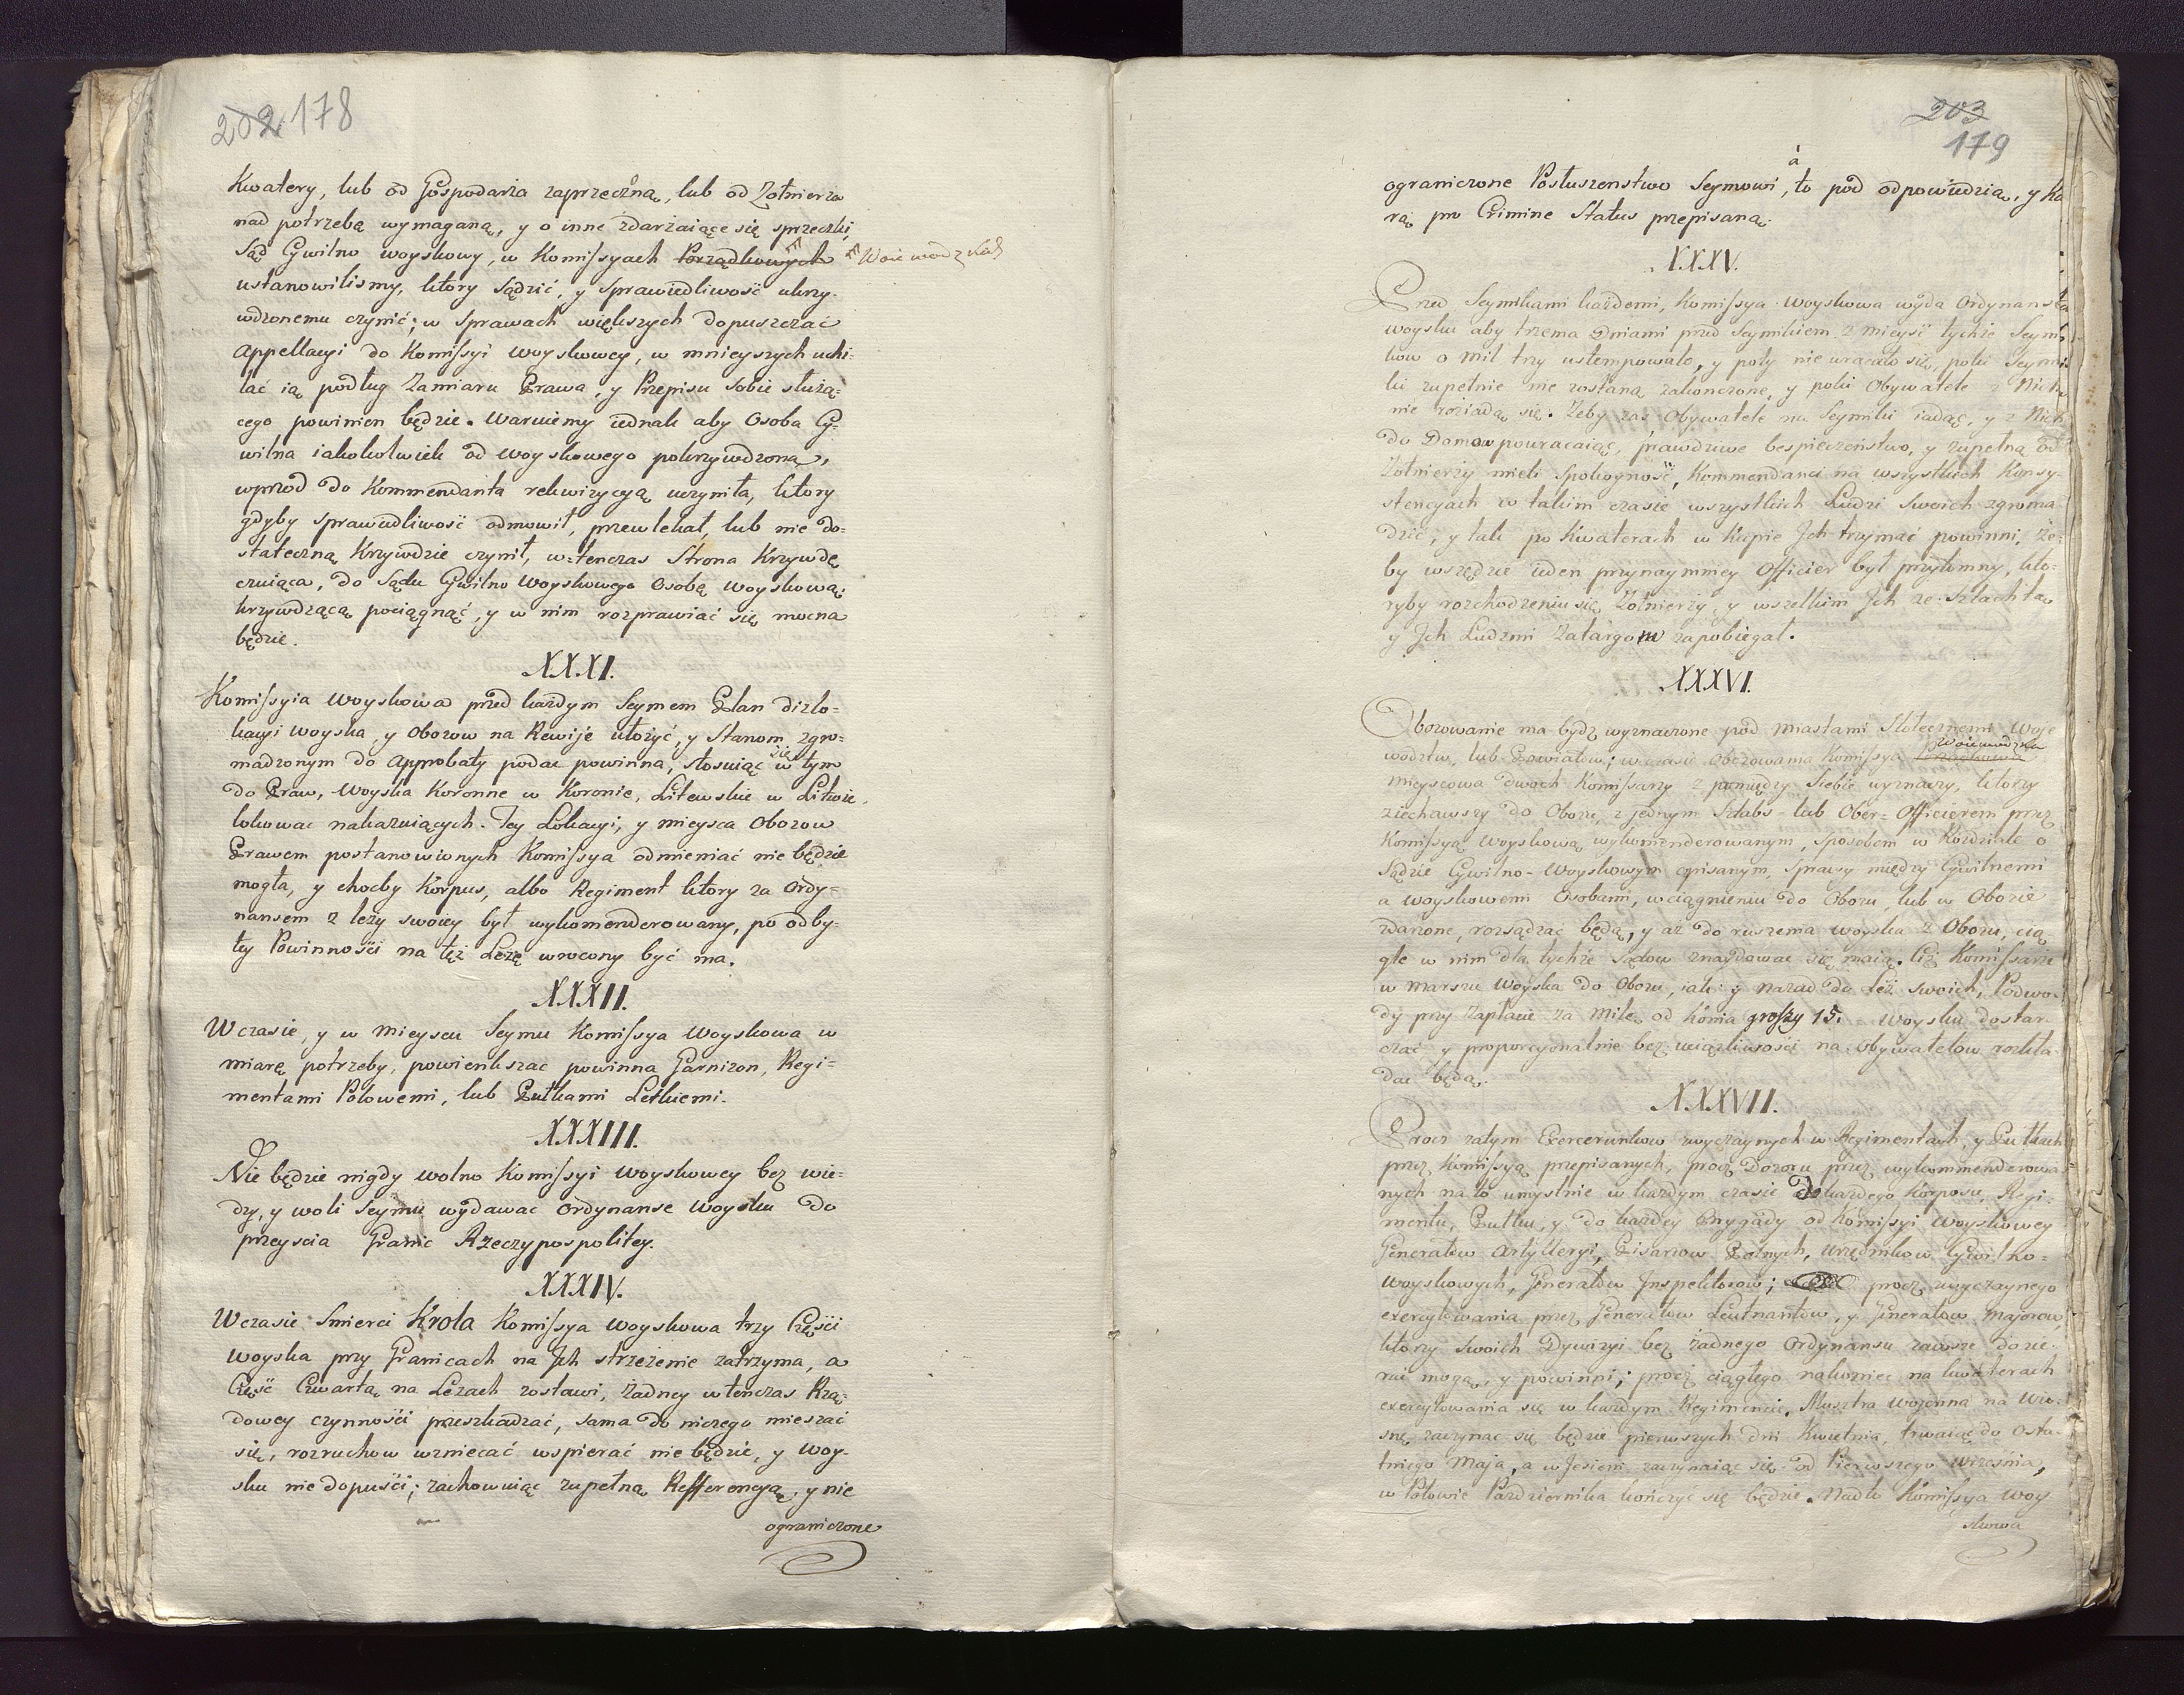 202 178
Kwatery, lub od Gospodarza zaprzeczną, lub od Zołnierza
nad potrzebą wymaganą, y o inne zdarzaiące się sprzeczki,
Sąd Cywilno woyskowy, w Komissyach Porządkowych Woiewodzkich
ustanowilismy, ktory Sądzić, y Sprawiedliwość ukrzy-
wdzonemu czynić; w Sprawach większych dopuszczać
Appellacyi do Komissyi Woyskowey, w mnieyszych uchi-
lać ią podług Zamiaru Prawa, y Przepisu Sobie służą-
cego powinien będzie. Waruiemy iednak aby Osoba Cy-
wilna iakokolwiek od woyskowego pokrzywdzona,
wprzod do Kommendanta rekwizycyą uczyniła, ktory
gdyby Sprawiedliwość odmowił, przewlekał, lub nie do-
stateczną Krzywdzie czynił, w-tenczas Strona Krzywdę
czuiąca, do Sądu Cywilno Woyskowego Osobę woyskową
krzywdzącą pociągnąć, y w nim rozprawiać się mocna
będzie.
XXXI.
Komissyia Woyskowa przed każdym Seymem Plan dizlo-
kacyi woyska, y Obozow na Rewije ułożyć, y Stanom zgro-
madzonym do Approbaty podać powinna, stosuiąc się w tym
do Praw, Woyska Koronne w Koronie, Litewskie w Litwie
lokować nakazuiących. Tey Lokacyi, y mieysca Obozow
Prawem postanowionych Komissya odmieniać nie będzie
mogła, y choćby Korpus, albo Regiment ktory za Ordy-
nansem z leży swoiey był wykomenderowany, po odby-
tey Powinności na tęż Leżę wrocony być ma.
XXXII.
W czasie, y w mieyscu Seymu Komissya Woyskowa w
miarę potrzeby, powienkszać powinna Garnizon, Regi-
mentami Polowemi, lub Pułkami Letkiemi.
XXXIII.
Nie będzie nigdy wolno Komissyi Woyskowey bez wie-
dzy, y woli Seymu wydawać Ordynanse Woysku do
przeyscia Granic Rzeczypospolitey.
XXXIV.
W czasie Smierci Krola Komissya Woyskowa trzy Części
Woyska przy Granicach na Jch strzeżenie zatrzyma, a
Część Czwartą na Leżach zostawi, żadney wtenczas Rzą-
dowey czynności przeszkadzać, sama do niczego mieszać
się, rozruchow wzniecać wspierać nie będzie, y Woy-
sku nie dopuści; zachowuiąc zupełną Refferencyą, y nie
ograniczone
203
179
ograniczone Posłuszenstwo Seymowi, à to pod odpowiedzią, y ka
rą pro Crimine Status przepisaną.
XXXV.
Przed Seymikami każdemi, Komissya Woyskowa wyda Ordynanse
woysku aby trzema Dniami przed Seymikiem z mieysc tychże Seymi
kow o mil trzy ustempowało, y poty nie wracało się, poki Seymi
ki zupełnie nie zostaną zakonczone, y poki Obywatele z Nich
nie roziadą się. Zeby zas Obywatele na Seymiki iadąc, y z Nich
do Domow powracaiąc, prawdziwe bespieczeństwo, y zupełną od
Zołnierzy mieli Spokoyność, Kommendanci na wszystkich Konsy-
stencyach w takim czasie wszystkich Ludzi Swoich zgroma
dzić, y tak po Kwaterach w Kupie Jch trzymać powinni, że-
by wszędzie ieden przynaymniey Officier był przytomny, kto-
ryby rozchodzeniu się Zołnierzy, y wszelkim Jch ze Szlachtą
y Jch Ludzmi Zatargom zapobiegał.
XXXVI.
Obozowanie ma bydz wyznaczone pod miastami Stołecznemi Woje
wodztw, lub Powiatow; w czasie obozowania Komissya Porządkowa Woiewodzka
mieyscowa dwoch Komissarzy z pomiędzy Siebie wyznaczy, ktorzy
ziechawszy do Obozu, z jednym Sztabs- lub Ober- Officierem przez
Komissyą Woyskową wykomenderowanym, Sposobem w Rozdziale o
Sądzie Cywilno- Woyskowym opisanym, Sprawy między Cywilnemi
a woyskowemi Osobami, w ciągnieniu do Obozu, lub w Obozie
zdarzone, rozsądzać będą, y aż do ruszenia woyska z Obozu, cią
gle w nim dla tychże Sądow znaydować się maią. Ciż Komissarze
w marszu Woyska do Obozu, iak y nazad do Leż swoich, Podwo
dy przy Zapłacie za Milę od Konia groszy 15. Woysku dostar
czać y proporcyonalnie bez uciążliwości na Obywatelow rozkła
dać będą.
XXXVII.
Procz zatym Exercerunkow zwyczaynych w Regimentach, y Pułkach
przez Komissyą przepisanych, procz Dozoru przez wykommenderowa
nych na to umyslnie w każdym czasie do każdego Korpusu, Regi-
mentu, Pułku, y do każdey Brygady od Komissyi Woyskowey
Generałow Artylleryi, Pisarzow Polnych, urzędnikow Cywilno-
woyskowych, Generałow Inspektorow; procz zwyczaynego
exercytowania przez Generałow Leutnantow, y Generałow Majorow,
ktorzy Swoich Dywizyi bez żadnego Ordynansu zawsze dozie-
rać mogą, y powinni; procz ciągłego nakoniec na kwaterach
exercytowania się w każdym Regimencie, Musztra wojenna na Wio-
snę zaczynać się będzie pierwszych dni Kwietnia, trwaiąc do Osta-
tniego Maja, a w Jesieni zaczynaiąc się od Pierwszego Wrzesnia,
w Połowie Pazdziernika kończyć się będzie. Nadto Komissya Woy
skowa